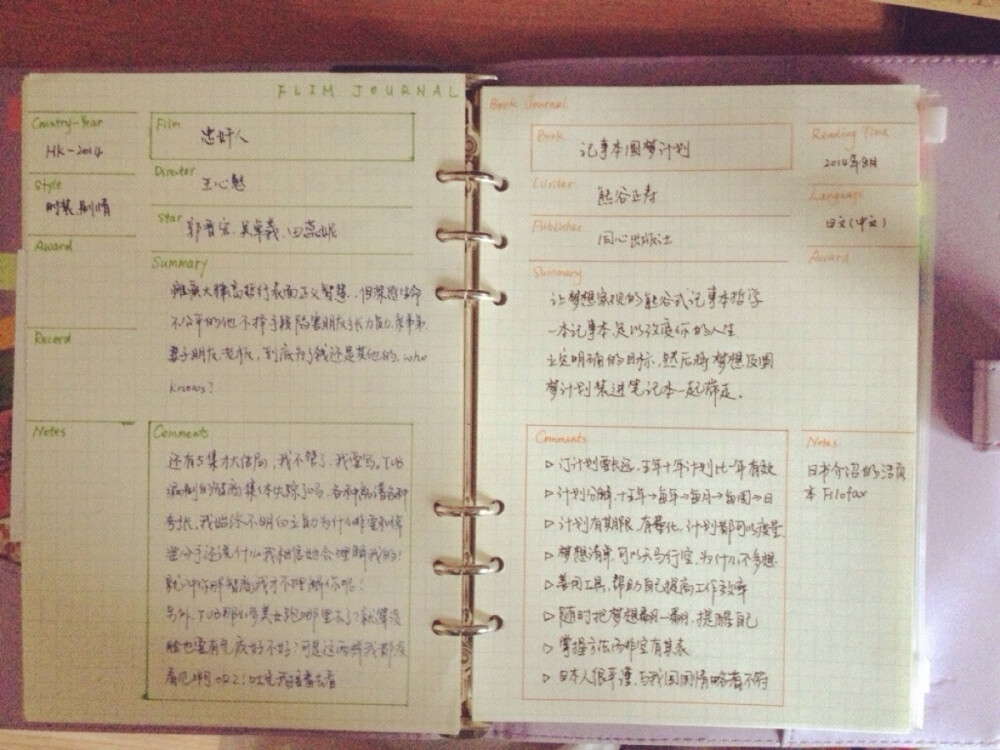 FLIM JOURNAL
Country-Year
HK-2014
Film
忠奸人
Style
时装.剧情
Director
王心慰
Award
Star
郭晋安、吴卓羲、田蕊妮
Summary
大律高哲行表面正义智慧、但某患生命
不公平的他不择手段陷害朋友
妻子朋友老板,到底为了钱还是其他的,who
knows?
Record
Notes
Comments
还有5集才大结局,我不管了,我要骂,TVB
编剧的智商集体失踪了吗,各种
我始终不明白
还说什么我相信她会理解我的!
就冲你那智商我才不理解你呢!
另外,TVB那些美女跑哪里去了?就算没
脸也要有气质好不好?可是这两样我都没
看见啊
Book Journal
Book
记事本圆梦计划
Reading Time
2014年8月
Writer
熊谷正寿
Language
日文(中文)
Publisher
同心出版社
Award
Summary
让梦想实现的熊谷式记事本哲学
一本记事本足以改变你的人生
立定明确的目标,然后将梦想及圆
梦计划装进笔记本一起带走.
Comments
▷ 订计划要长远,五年十年计划比一年有效
▷ 计划分解,十五年→每年→每月→每周→日
▷ 计划有期限,有量化,计划都可以度量
▷ 梦想清单,可以天马行空,为什么不多想
▷ 善用工具,帮助自己提高工作效率
▷ 随时把梦想翻一翻,提醒自己
▷ 掌握方法而非空有其表
▷ 日本人很严谨,与我国国情略有不符
Notes
日书介绍的活页
本 Filofax